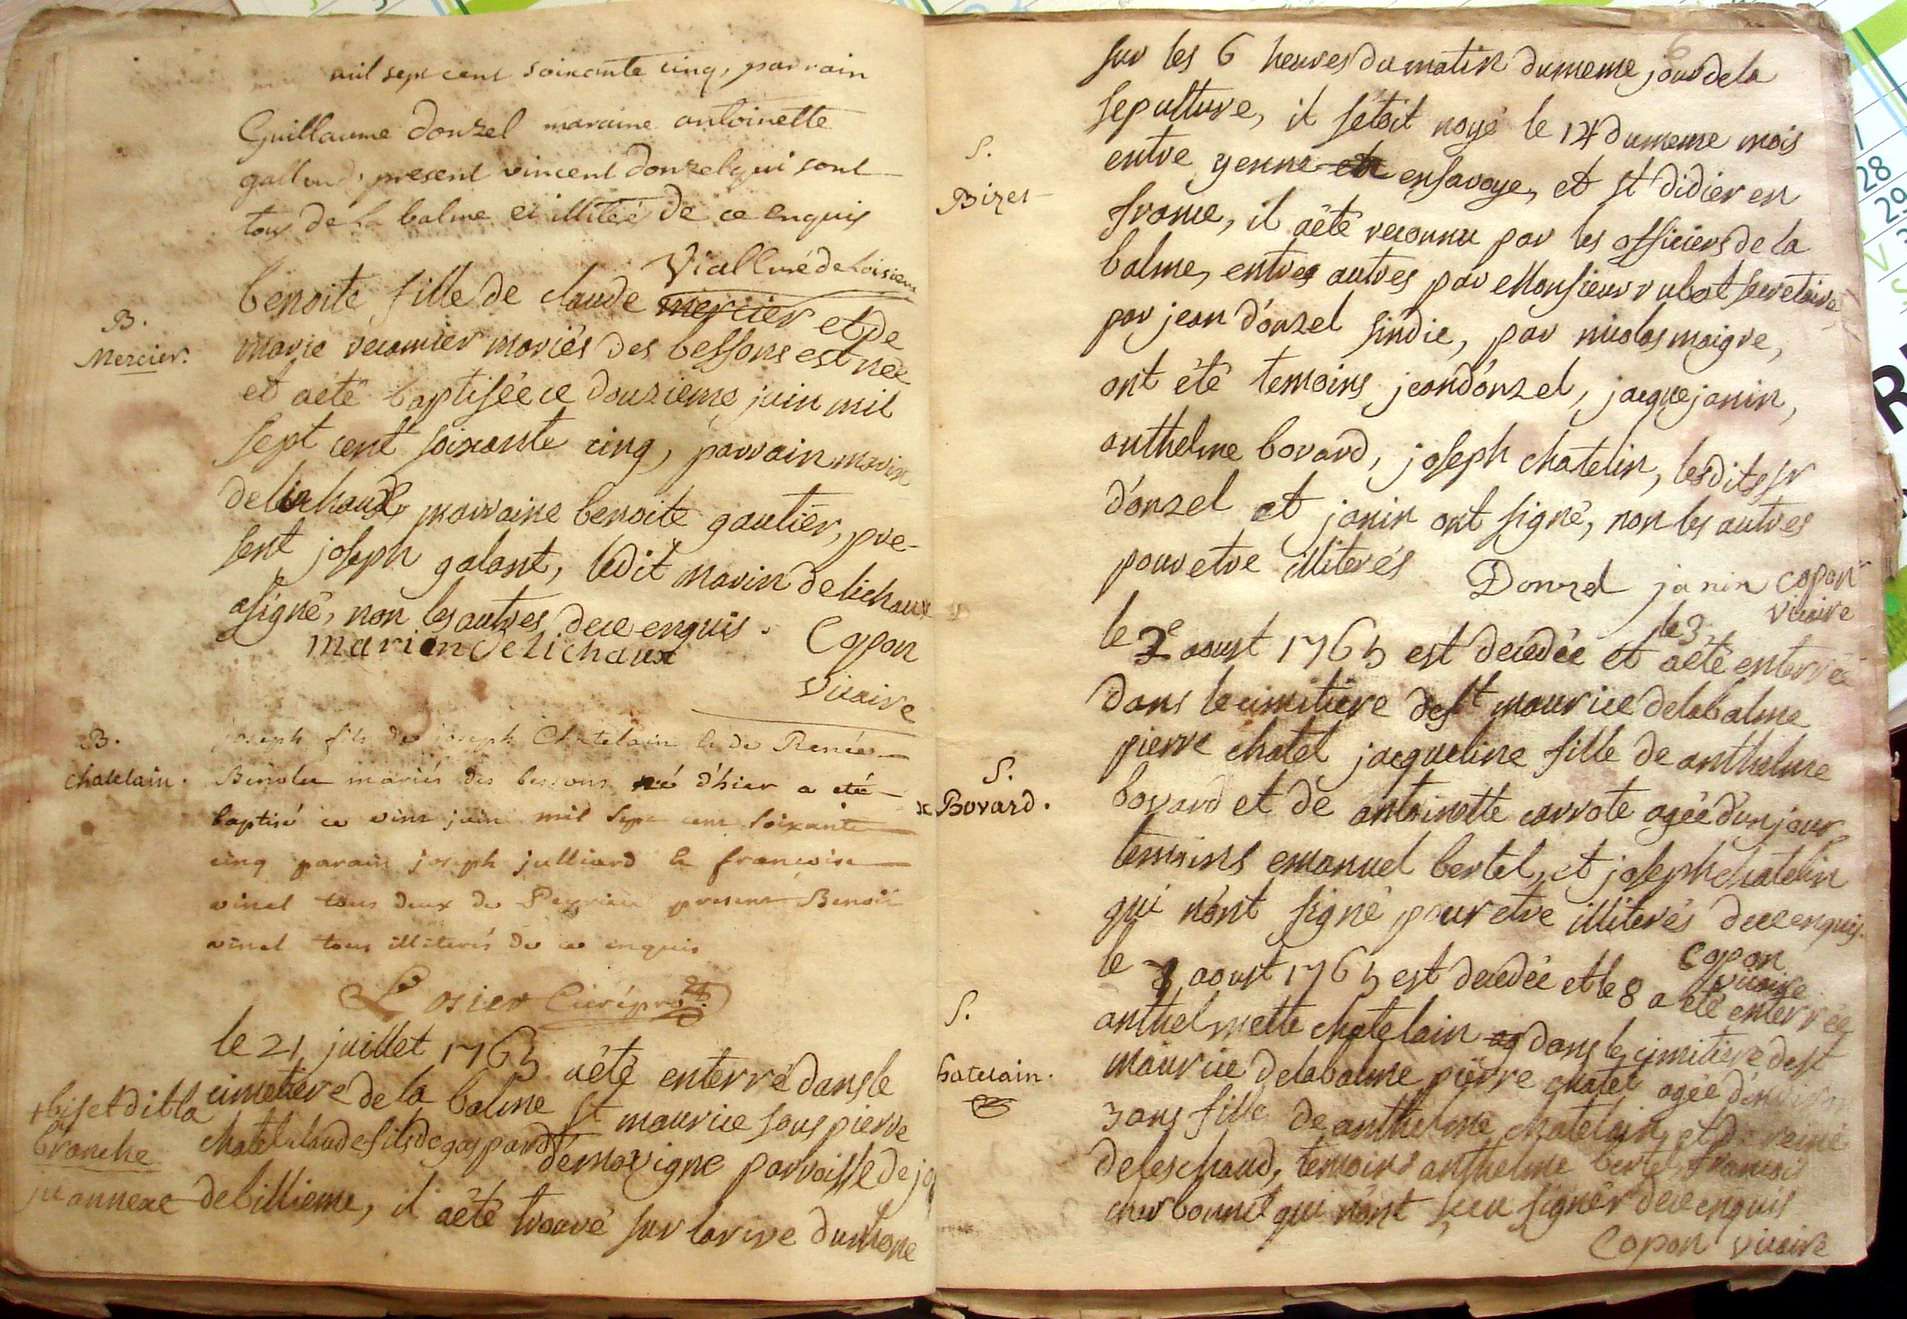 mil sept cent soixante cinq, parrain
Guillaume donzel maraine antoinette
present vincent donzel qui sont
tous de la balme et illiteré de ce enquis
B.
Mercier.
Viallmé de Loisieux
benoite fille de claude mercier et de
marie recamier mariés des bessons est née
et aété baptisée ce douzieme juin mil
sept cent soixante cinq, parrain marin
delichaux marraine benoite gautier, pre-
sent joseph galant, ledit marin delichaux
asigné, non les autres dece enquis.
marin delichaux
Copon
vicaire
B.
Chatelain.
joseph fils de joseph Chatelain & de Renée
mariés des bessons né d'hier a eté
baptisé ce vint juin mil sept cent soixante
cinq parain joseph julliard & francoise
vinel tous deux de Peyrieu present Benoit
vinel tous illiterés de ce enquis
Losier Curé
le 21 juillet 1765 aété enterré dans le
cimetiere de la balme st maurice sous pierre
+ biset dit la
branche
chatel claude fils de gaspard demavigne parroisse de
annexe de billieme, il aété trouvé sur la rive du rhone
6
S.
Bizet
sur les 6 heures du matin dumeme jour dela
sepulture, il s'étoit noyé le 14 dumeme mois
entre yenne et ensavoye, et st didier en
france, il aété reconnu par les officiers de la
balme, entres autres par Monsieur rubat secretaire
par jean d'onzel sindic, par nicolas maigre,
ont été temoins jean d'onzel, jacque janin,
anthelme bovard, joseph chatelin, lesdits sr
d'onzel et janin ont signé, non les autres
pour etre illiterés
Donzel janin copon
vicaire
S.
x Bovard.
le 3
le 2e aoust 1765 est decedée et aété enterrée
dans le cimitiere de st maurice delabalme
pierre chatel jacqueline fille de anthelme
bovard et de antoinette carrote agée d'un jour,
temoins emanuel bertet, et joseph chatelin
qui n'ont signé pour etre illiterés dece enquis.
Copon
vicaire
S.
hatelain.
le 7 aoust 1765 est decedée et le 8 a été enterrée
anthelmette chatelain dans le cimitiere de st
maurice delabalme pierre chatel agée d'environ
3 ans fille de anthelme chatelain et de renée
deleschaud, temoins anthelme bertet francois
charbonnet qui n'ont sceu signer dece enquis
Copon vicaire